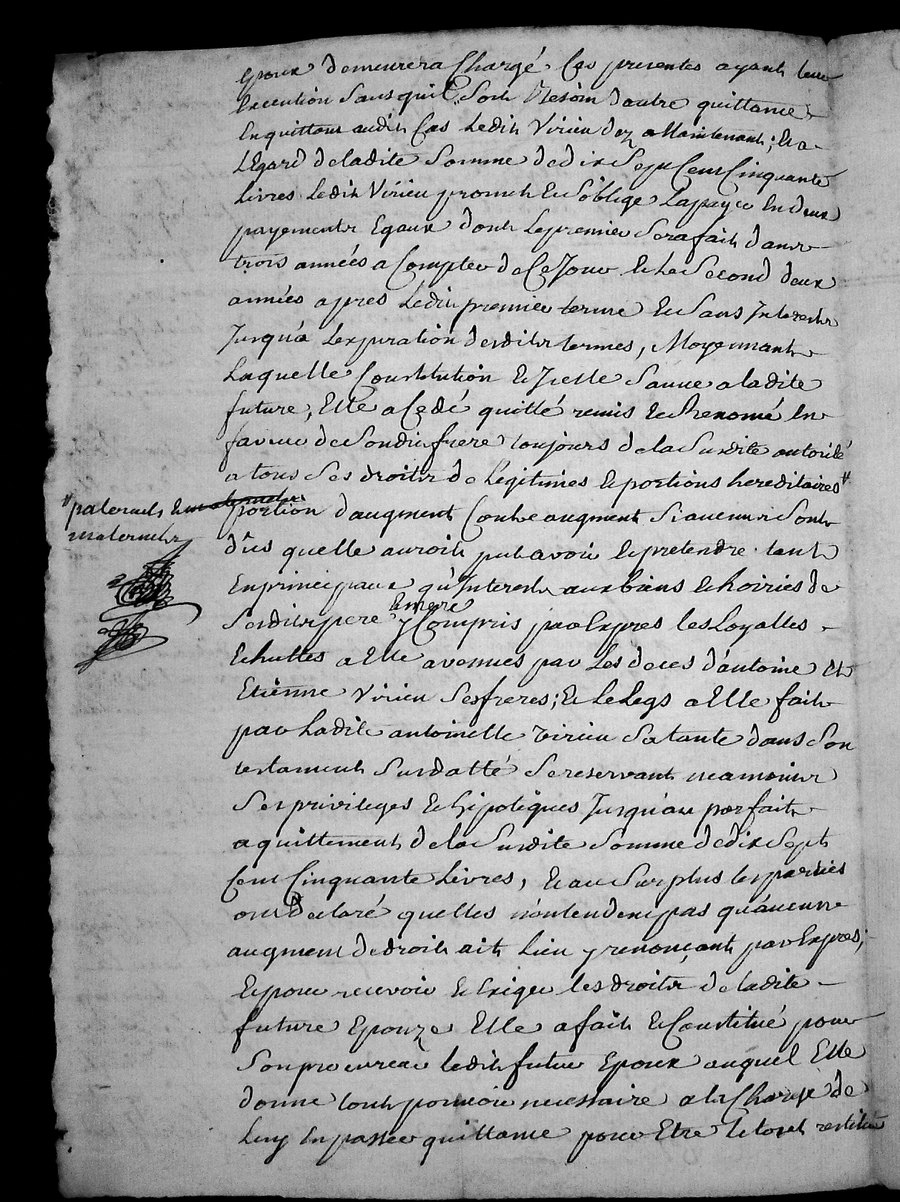 Epoux demeurera Chargé Ces presentes ayant leur
Execution Sans quil Soit Besoin dautre quittance
En quittant audit Cas Ledit Virieu dez a Maintenant; Et a
LEgard de ladite Somme de dix Sept Cent Cinquante
Livres Ledit Virieu promet Et Soblige La payer En deux
payements Egaux dont Le premier Sera fait dans
trois années a Compter de Ce Jour Et Le Second deux
années apres Ledit premier terme Et Sans Interests
Jusqu'a Lexpiration desdits termes, Moyennant
Laquelle Constitution Et Icelle Sauve a ladite
future, Elle a Cedé quitté remis Et Renomé En
faveur de Sondit frere toujours de la Susdite autorité
a tous Ses droits de Legitimes Et portions hereditaires #
# paternels Et maternels
maternels
portion daugment Contre augment Si aucuns Sont
dûs quelle auroit put avoir Et pretendre tant
En principaux qu'Interests aux biens Et hoiries de
Sesdits pere Et mere y Compris par Expres les Loyalles
Echuttes a Elle avenues par Les deces d'antoine Et
Etienne Virieu Ses freres; Et Le Legs a Elle fait
par Ladite antoinette Virieu Sa tante dans Son
testament Susdatté Se reservant neamoins
Ses privileges Et hipoteques Jusqu'au parfait
aquittement de la Susdite Somme de dix Sept
Cent Cinquante Livres, Et au Surplus les parties
ont declaré quelles nentendent pas qu'aucun
augment de droit ait Lieu y renonçant par Expres;
Et pour recevoir Et Exiger les droits de ladite
future Epouze Elle a fait Et Constitué pour
Son procureur ledit futur Epoux auquel Elle
donne tout pouvoir necessaire a la Charge de
Luy En passer quittance pour Etre Le tout restitué